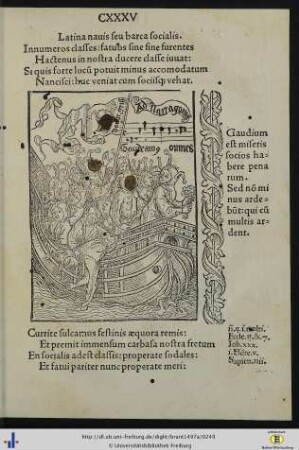 CXXXV
Latina nauis seu barca socialis.
Innumeros classes: fatuos sine fine furentes
Hactenus in nostra ducere classe iouat:
Si quis forte locũ potuit minus accomodatum
Nancisci: huc veniat cum sociisque vehat.
Ad narragoniã
Gaudeamus omnes
Gaudium
est miseris
socios ha-
bere pena
rum.
Sed nõ mi
nus arde-
būt: qui cũ
multis ar-
dent.
Currite sulcamus festinis æquora remis:
Et premit immensum carbasa nostra fretum
En socialis adest classis: properate sodales:
Et fatui pariter nunc properate meri:
Iob. xxx.
Sapien. iiii.
http://dl.ub.uni-freiburg.de/diglit/brant1497a/0249
© Universitätsbibliothek Freiburg